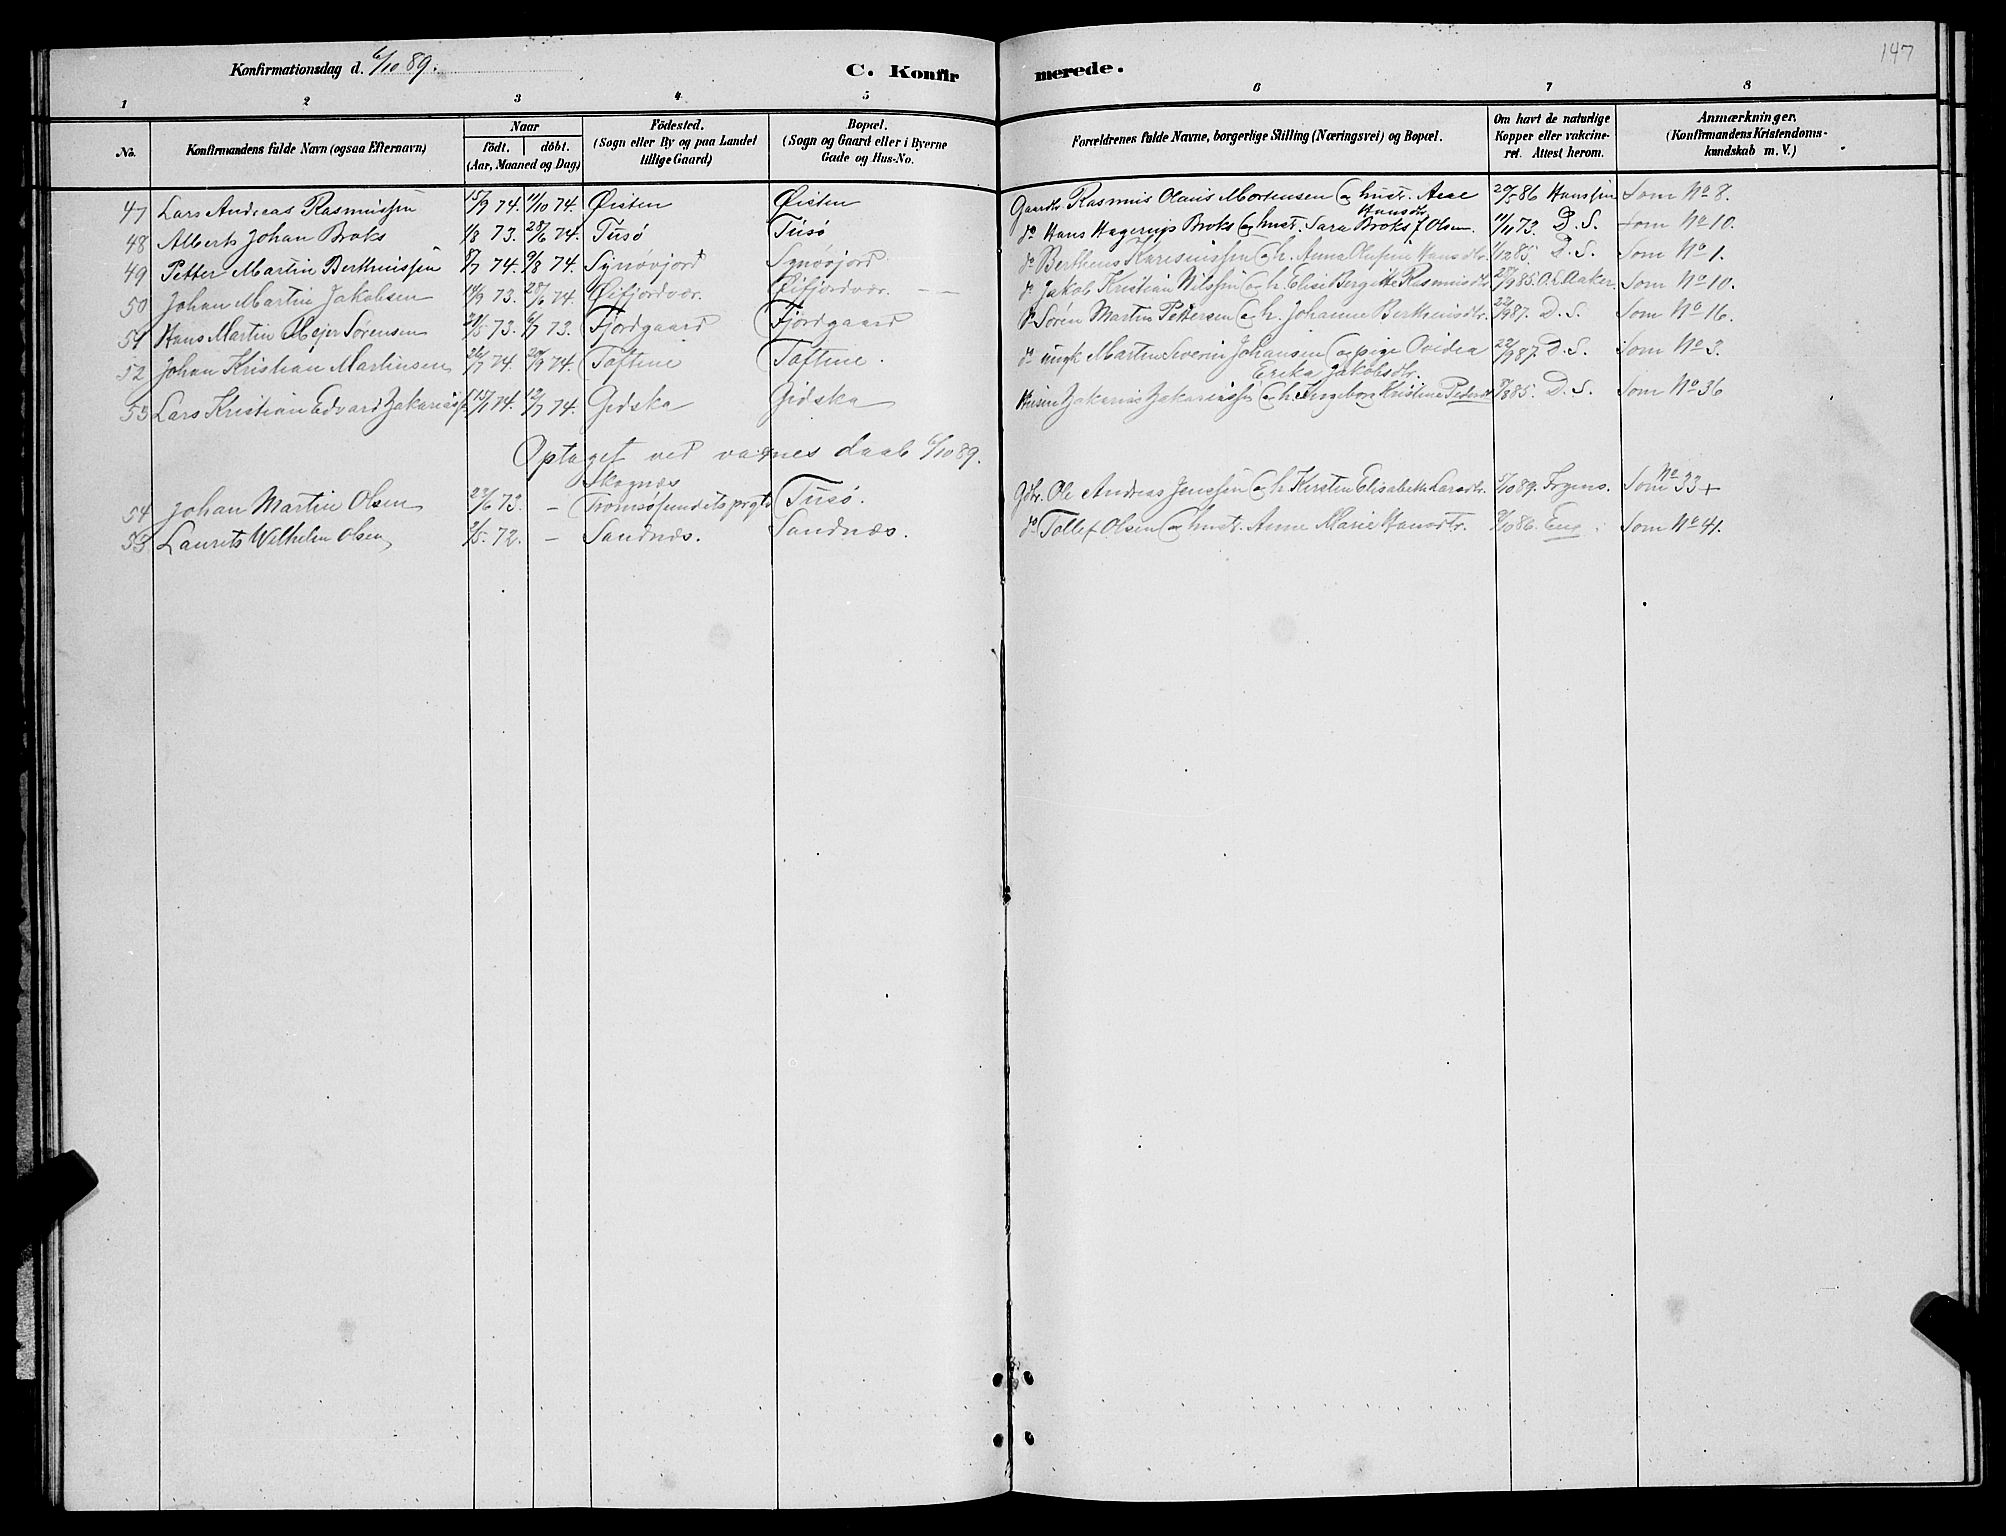 147
Konfirmationsdag d. 6/10 89. C. Konfir merede.
1 2 3 4 5 6 7 8
No. Konfirmandens fulde Navn (ogsaa Efternavn) Naar født. døbt. (Aar, Maaned og Dag) Fødested. (Sogn eller By og paa Landet tillige Gaard) Bopæl. (Sogn og Gaard eller i Byerne Gade og Hus-No. Forældrenes fulde Navne, borgerlige Stilling (Næringsvei) og Bopæl. Om havt de naturlige Kopper eller vakcineret. Attest herom. Anmærkninger. (Konfirmandens Kristendomskundskab m. V.)
47 Lars Andreas Rasmussen 15/9 74. 11/10 74. Øisten Øisten Gaardbr. Rasmus Olaus Mortensen og hustr. Ane Hansdtr. 20/5 86 Hanssen Som No 8.
48 Alberts Johan Broks 1/8 73. 28/6 74. Tusø Tusø do Hans Hagerup Broks og hust. Sara Broks f Olsen. 11/11 73. D. S. Som No 10.
49 Petter Martin Bertheussen 8/7 74. 9/8 74. Synøvjord Synøvjord do Bertheus Kareniussen og h. Anna Olufine Hansdtr. 1/12 85. D. S. Som No 1.
50 Johan Martin Jakobsen 14/9 73. 28/6 74. Øifjordvær. Øifjordvær. do Jakob Kristian Nilssen og h. Elise Bergitte Rasmusdtr 29/9 85. O. L. Aaker Som No 10.
51 Hans Martin Mejer Sørensen 21/5 73. 6/7 73. Fjordgaard Fjordgaard do Søren Martin Pettersen og h. Johanne Bertheusdtr. 22/9 87. D. S. Som No 16.
52 Johan Kristian Martinsen 26/7 74. 20/9 74. Toftene Toftene. do ungk Martin Severin Johansen og pige Ovidia Erika Jakobsdtr. 22/9 87. D. S. Som No 3.
53 Lars Kristian Edvard Zakariass. 15/1 74. 12/7 74. Gidska Gidska Zakarias Zakariassen og h. Ingeborg Kristine Pedersdtr 9/8 85. D. S. Som No 36
Optaget ved voxnes daab 6/10 89.
54 Johan Martin Olsen 23/6 73. – Skognæs Tromsøsundets prgld Tusø. Gbr. Ole Andreas Jenssen og h. Kirsten Elisabeth Larsdtr. 5/10 89. Irgens. Som No 33+
55 Laurits Wilhelm Olsen 2/5. 72. – Sandnæs. Sandnæs. do Tollef Olsen og hustr. Anne Marie Hansdtr. 9/10 86. Eng Som No 41.